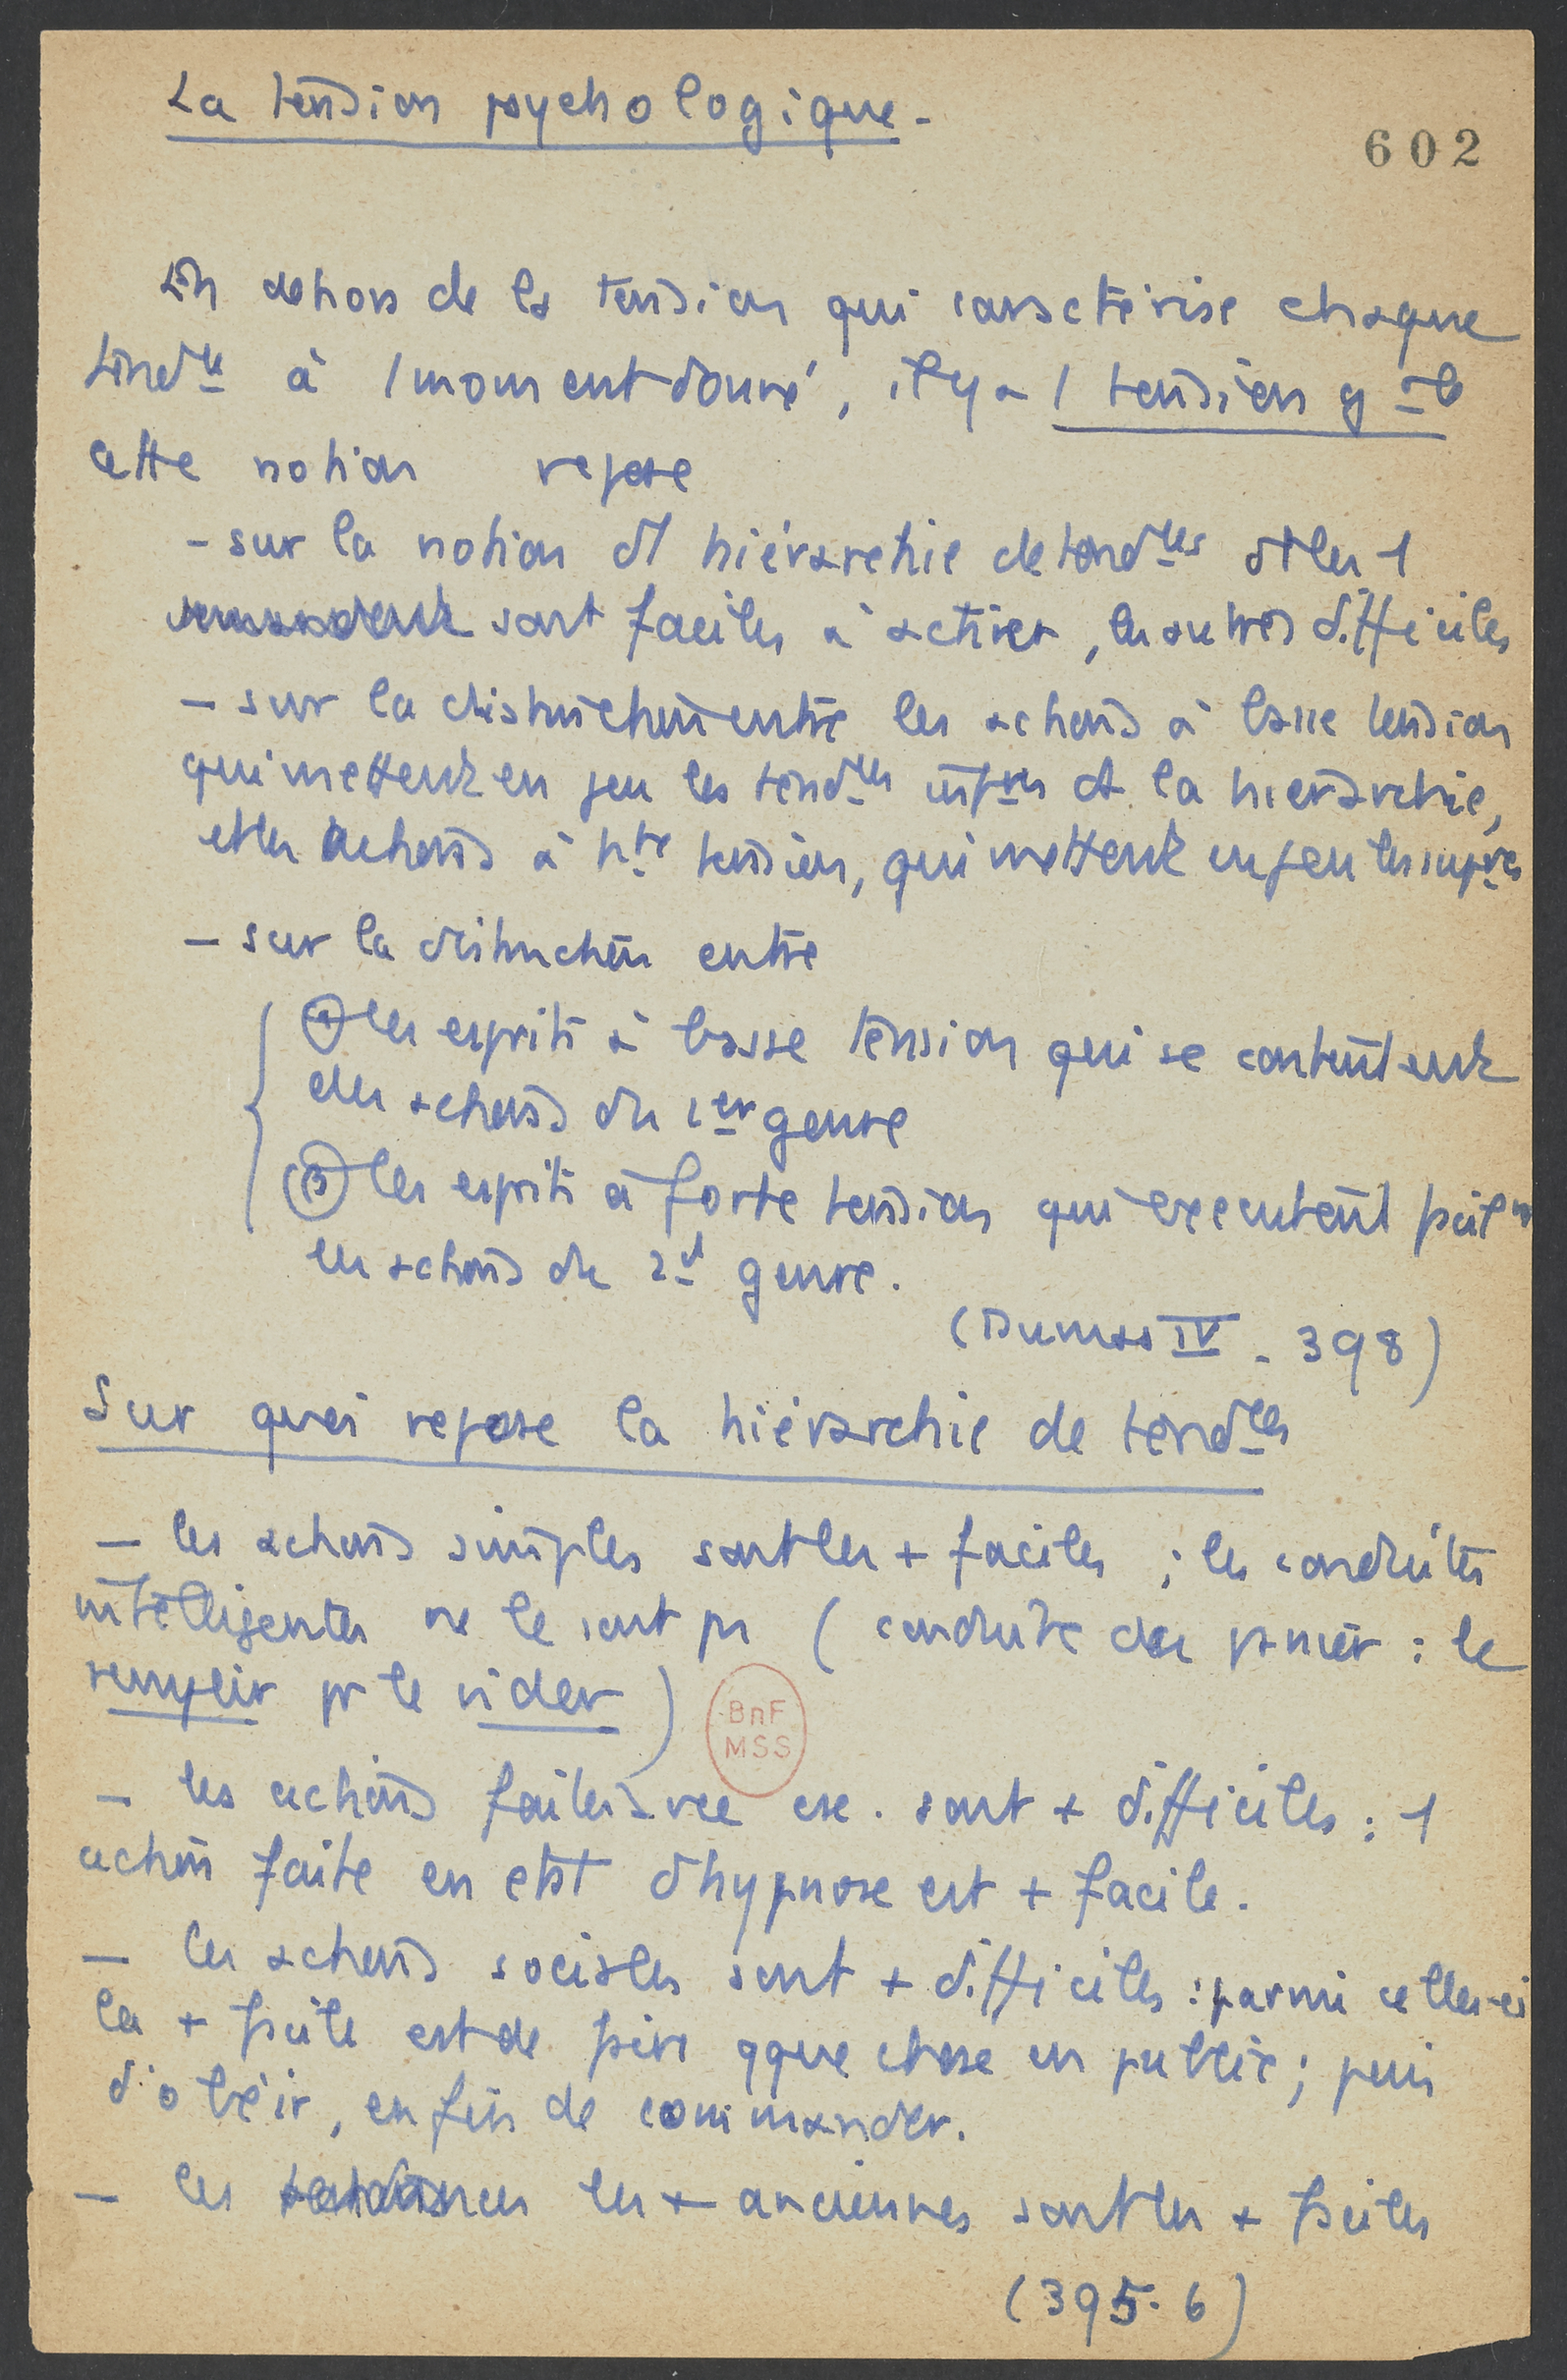 La tension psychologique.
602
En dehors de la tension qui caractérise chaque
tendce à 1 moment donné, il y a 1 tension gale
cette notion repose
- sur la notion d'1 hiérarchie de tendces dt les 1
sont faciles à activer, les autres difficiles
- sur la distinction entre les actions à basse tension
qui mettent en jeu les tendces infres de la hiérarchie,
et les actions à hte tension, qui mettent en jeu les supres
- sur la distinction entre
α les esprits à basse tension qui se contentent
des actions du 1er genre
β les esprits à forte tension qui exécutent facilt
les actions du 2d genre.
(Dumas IV - 398)
Sur quoi repose la hiérarchie de tendces
- les actions simples sont les + faciles ; les conduites
intelligentes ne le sont pas ( conduite du panier : le
remplir pr le vider )
BnF
MSS
- les actions faites avec csc. sont + difficiles : 1
action faite en état d'hypnose est + facile.
- les actions sociales sont + difficiles : parmi celles-ci
la + facile est de faire qque chose en public ; puis
d'obéir, enfin de commander.
- les tendances les + anciennes sont les + faciles
(395-6)